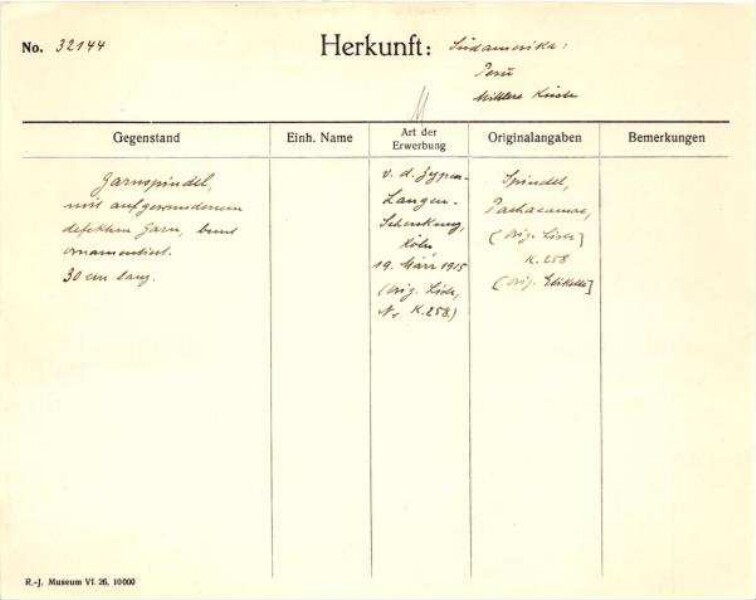 No. 32144
Herkunft: Südamerika:
Peru
Mittlere Küste
Gegenstand
Einh. Name
Art der
Erwerbung
Originalangaben
Bemerkungen
Garnspindel,
mit aufgewundenem
defektem Garn, bunt
ornamentiert.
30 cm lang.
v. d. Zypen-
Langen-
Schenkung,
Köln
19. März 1915
(Orig. Liste,
Nr K. 258.)
Spindel,
Pachacamac,
(Orig. Liste)
K. 258
(Orig. Etikette)
R.-J. Museum VI. 26. 10000